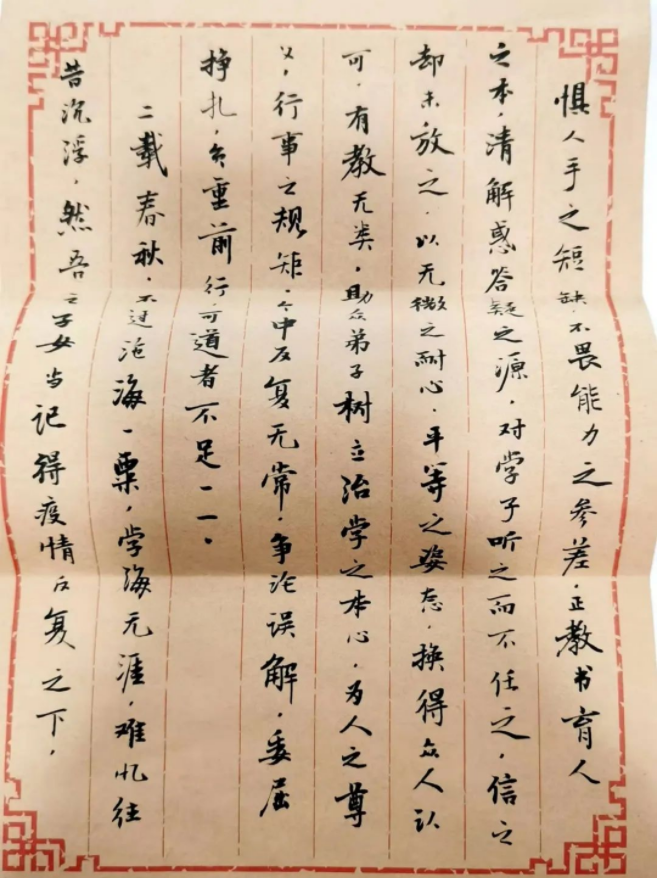 惧人手之短缺，不畏能力之参差，正教书育人
之本，清解惑答疑之源，对学子听之而不任之，信之
却未放之，以无微之耐心，平等之姿态，换得众人认
可，有教无类，助众弟子树立治学之本心，为人之尊
义，行事之规矩，个中反复无常，争论误解，委屈
挣扎，负重前行可道者不足一一。
二载春秋，不过沧海一粟，学海无涯，难忆往
昔沉浮，然吾之子女当记得疫情反复之下，